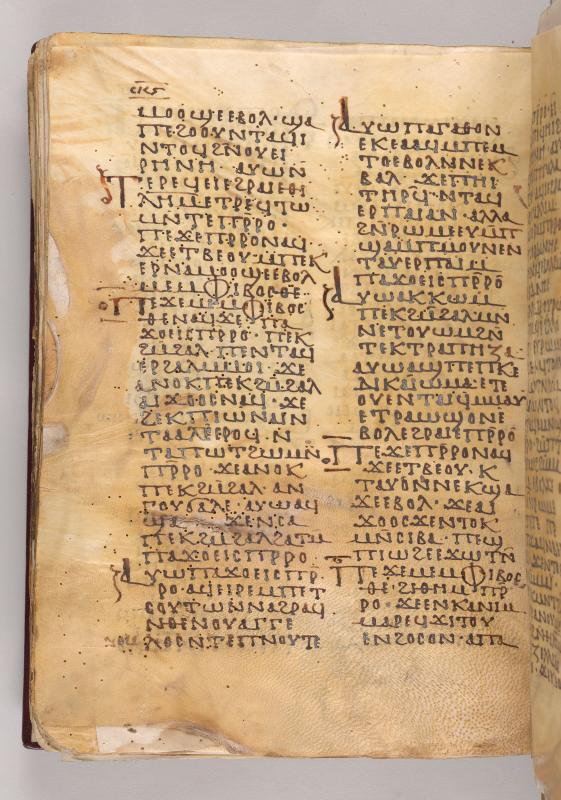 ⲥⲓⲋ
ⲙⲟⲟϣⲉⲉⲃⲟⲗ·ϣⲁ
ⲡⲉϩⲟⲟⲩⲛⲧⲁϥⲓ
ⲛⲧⲟϥϩⲛⲟⲩⲉⲓ
ⲣⲏⲛⲏ·ⲁⲩⲱⲛ
ⲧⲉⲣⲉϥⲉⲓⲉϩⲣⲁⲓⲉⲑⲓ
ⲗⲏⲙⲉⲧⲣⲉϥⲧⲱ
ⲙⲛⲧⲉⲡⲣⲣⲟ·
ⲡⲉϫⲉⲡⲣⲣⲟⲛⲁϥ
ϫⲉⲉⲧⲃⲉⲟⲩⲙⲡⲉⲕ
ⲉⲣⲛⲁⲙⲟⲟϣⲉⲉⲃⲟⲗ
ⲙⲉⲙⲫⲓⲃⲟⲥⲑⲉ·
ⲡⲉϫⲉⲙⲉⲙⲫⲓⲃⲟⲥ
ⲑⲉⲛⲁϥϫⲉ·ⲡⲁ
ϫⲟⲉⲓⲥⲡⲣⲣⲟ·ⲡⲉⲕ
ϩⲙϩⲁⲗ·ⲡⲉⲛⲧⲁϥ
ⲉⲣϩⲁⲗⲙⲙⲟⲓ·ϫⲉ
ⲁⲛⲟⲕⲡⲉⲕϩⲙϩⲁⲗ
ⲁⲓϫⲟⲟⲥⲛⲁϥ·ϫⲉ
ϩⲉⲕⲡⲓⲱⲛⲁⲓⲛ
ⲧⲁⲁⲗⲉⲉⲣⲟϥ·ⲛ
ⲧⲁⲡⲱⲧϣⲱⲙⲛ
ⲡⲣⲣⲟ·ϫⲉⲁⲛⲟⲕ
ⲡⲉⲕϩⲙϩⲁⲗ·ⲁⲛ
ⲅⲟⲩϭⲁⲗⲉ·ⲁⲩⲱⲁϥ
ϣⲁϫⲉⲛⲥⲁ
ⲡⲉⲕϩⲙϩⲁⲗϩⲁϩⲧⲙ
ⲡⲁϫⲟⲉⲓⲥⲡⲣⲣⲟ
ⲁⲩⲱⲡⲁϫⲟⲉⲓⲥⲡⲣ
ⲣⲟ·ⲁϥⲉⲓⲣⲉⲙⲡⲉⲧ
ⲥⲟⲩⲧⲱⲛⲛⲁϩⲣⲁϥ
ⲛⲑⲉⲛⲟⲩⲁⲅⲅⲉ
ⲗⲟⲥⲛⲧⲉⲡⲛⲟⲩⲧⲉ
ⲁⲩⲱⲡⲁⲅⲁⲑⲟⲛ
ⲉⲕⲉⲁⲁϥⲙⲡⲉⲙ
ⲧⲟⲉⲃⲟⲗⲛⲛⲉⲕ
ⲃⲁⲗ·ϫⲉⲡⲏⲓ
ⲧⲏⲣϥ·ⲛⲧⲁϥ
ⲉⲣⲡⲁⲓⲁⲛ·ⲁⲗⲗⲁ
ϩⲛⲣⲱⲙⲉⲉⲩⲙⲡ
ϣⲁⲙⲡⲙⲟⲩⲛⲉⲛ
ⲧⲁⲩⲉⲣⲡⲁⲓⲙ
ⲡⲁϫⲟⲉⲓⲥⲡⲣⲣⲟ
ⲁⲩⲱⲁⲕⲕⲱⲙ
ⲡⲉⲕϩⲙϩⲁⲗϩⲛ
ⲛⲉⲧⲟⲩⲱⲙϩⲛ
ⲧⲉⲕⲧⲣⲁⲡⲏⲍⲁ
ⲁⲩⲱⲁϣⲡⲉⲡⲕⲉ
ⲇⲓⲕⲁⲓⲱⲙⲁⲉⲧⲉ
ⲟⲩⲉⲛⲧⲁⲓϥⲙⲙⲁⲩ
ⲉⲧⲣⲁⲱϣⲟⲛⲉ
ⲃⲟⲗⲉϩⲣⲁⲓⲉⲡⲣⲣⲟ
ⲡⲉϫⲉⲡⲣⲣⲟⲛⲁϥ
ϫⲉⲉⲧⲃⲉⲟⲩ·ⲕ
ⲧⲁⲩⲟⲛⲛⲉⲕϣⲁ
ϫⲉⲉⲃⲟⲗ·ϫⲉⲁⲓ
ϫⲟⲟⲥϫⲉⲛⲧⲟⲕ
ⲙⲛⲥⲓⲃⲁ·ⲡⲉϣ
ⲡⲓⲱϩⲉⲉϫⲱⲧⲛ
ⲡⲉϫⲉⲙⲉⲙⲫⲓⲃⲟⲥ
ⲑⲉ·ϩⲓⲑⲏⲙⲡⲣ
ⲣⲟ·ϫⲉⲉⲛⲕⲁⲛⲓⲙ
ⲙⲁⲣⲉϥϫⲓⲧⲟⲩ
ⲉⲛϩⲟⲥⲟⲛ·ⲁⲡⲁ